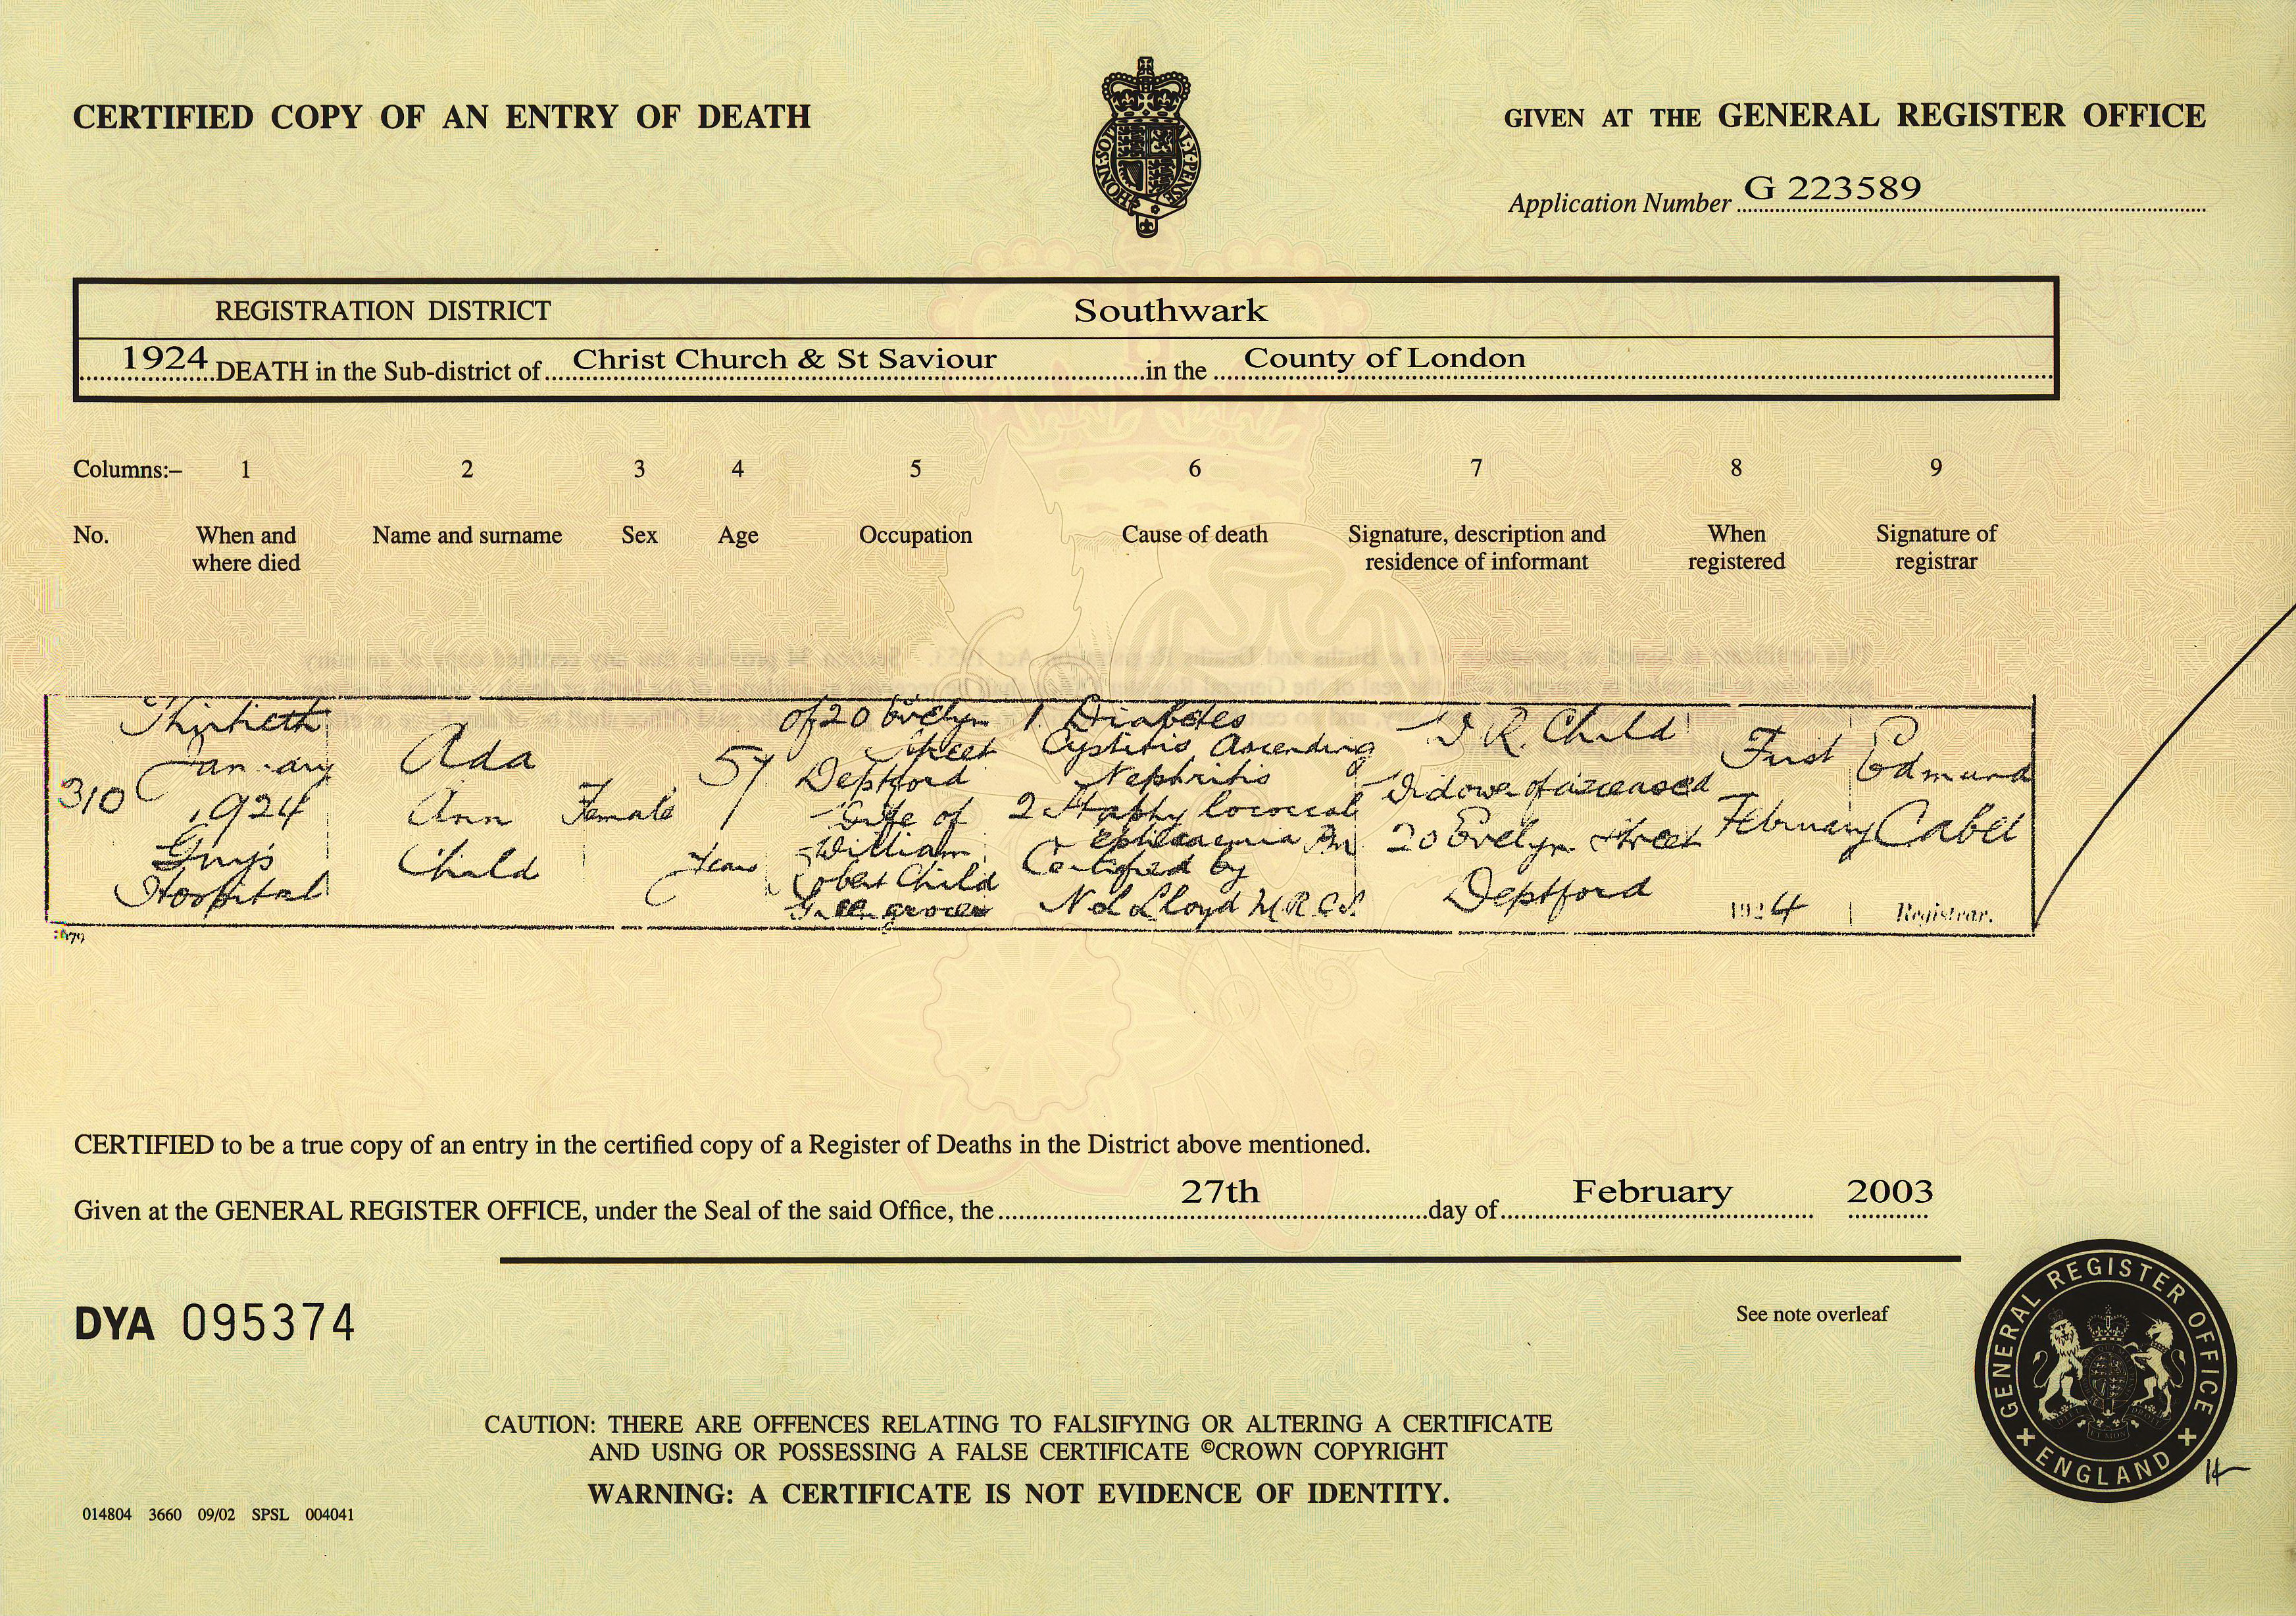 CERTIFIED COPY OF AN ENTRY OF DEATH
GIVEN AT THE GENERAL REGISTER OFFICE
HONI·SOIT Y·PENSE
Application Number G 223589
REGISTRATION DISTRICT Southwark
1924 DEATH in the Sub-district of Christ Church & St Saviour in the County of London
Columns:– 1 2 3 4 5 6 7 8 9
No. When and where died Name and surname Sex Age Occupation Cause of death Signature, description and residence of informant When registered Signature of registrar
310
Thirtieth
January
1924
Guy's
Hospital
Ada
Ann
Child
Female
57
years
of 20 Evelyn
Street
Deptford
Wife of
William
Robert Child
Greengrocer
1. Diabetes
Cystitis Ascending
Nephritis
2 Staphylococcal
Certified by
Lloyd M.R.C.S.
W R. Child
Widower of deceased
20 Evelyn Street
Deptford
First
February
1924
Edmund
Cabel
Registrar.
CERTIFIED to be a true copy of an entry in the certified copy of a Register of Deaths in the District above mentioned.
Given at the GENERAL REGISTER OFFICE, under the Seal of the said Office, the 27th day of February 2003
DYA 095374
See note overleaf
GENERAL REGISTER OFFICE
ENGLAND
CAUTION: THERE ARE OFFENCES RELATING TO FALSIFYING OR ALTERING A CERTIFICATE
AND USING OR POSSESSING A FALSE CERTIFICATE ©CROWN COPYRIGHT
WARNING: A CERTIFICATE IS NOT EVIDENCE OF IDENTITY.
014804 3660 09/02 SPSL 004041